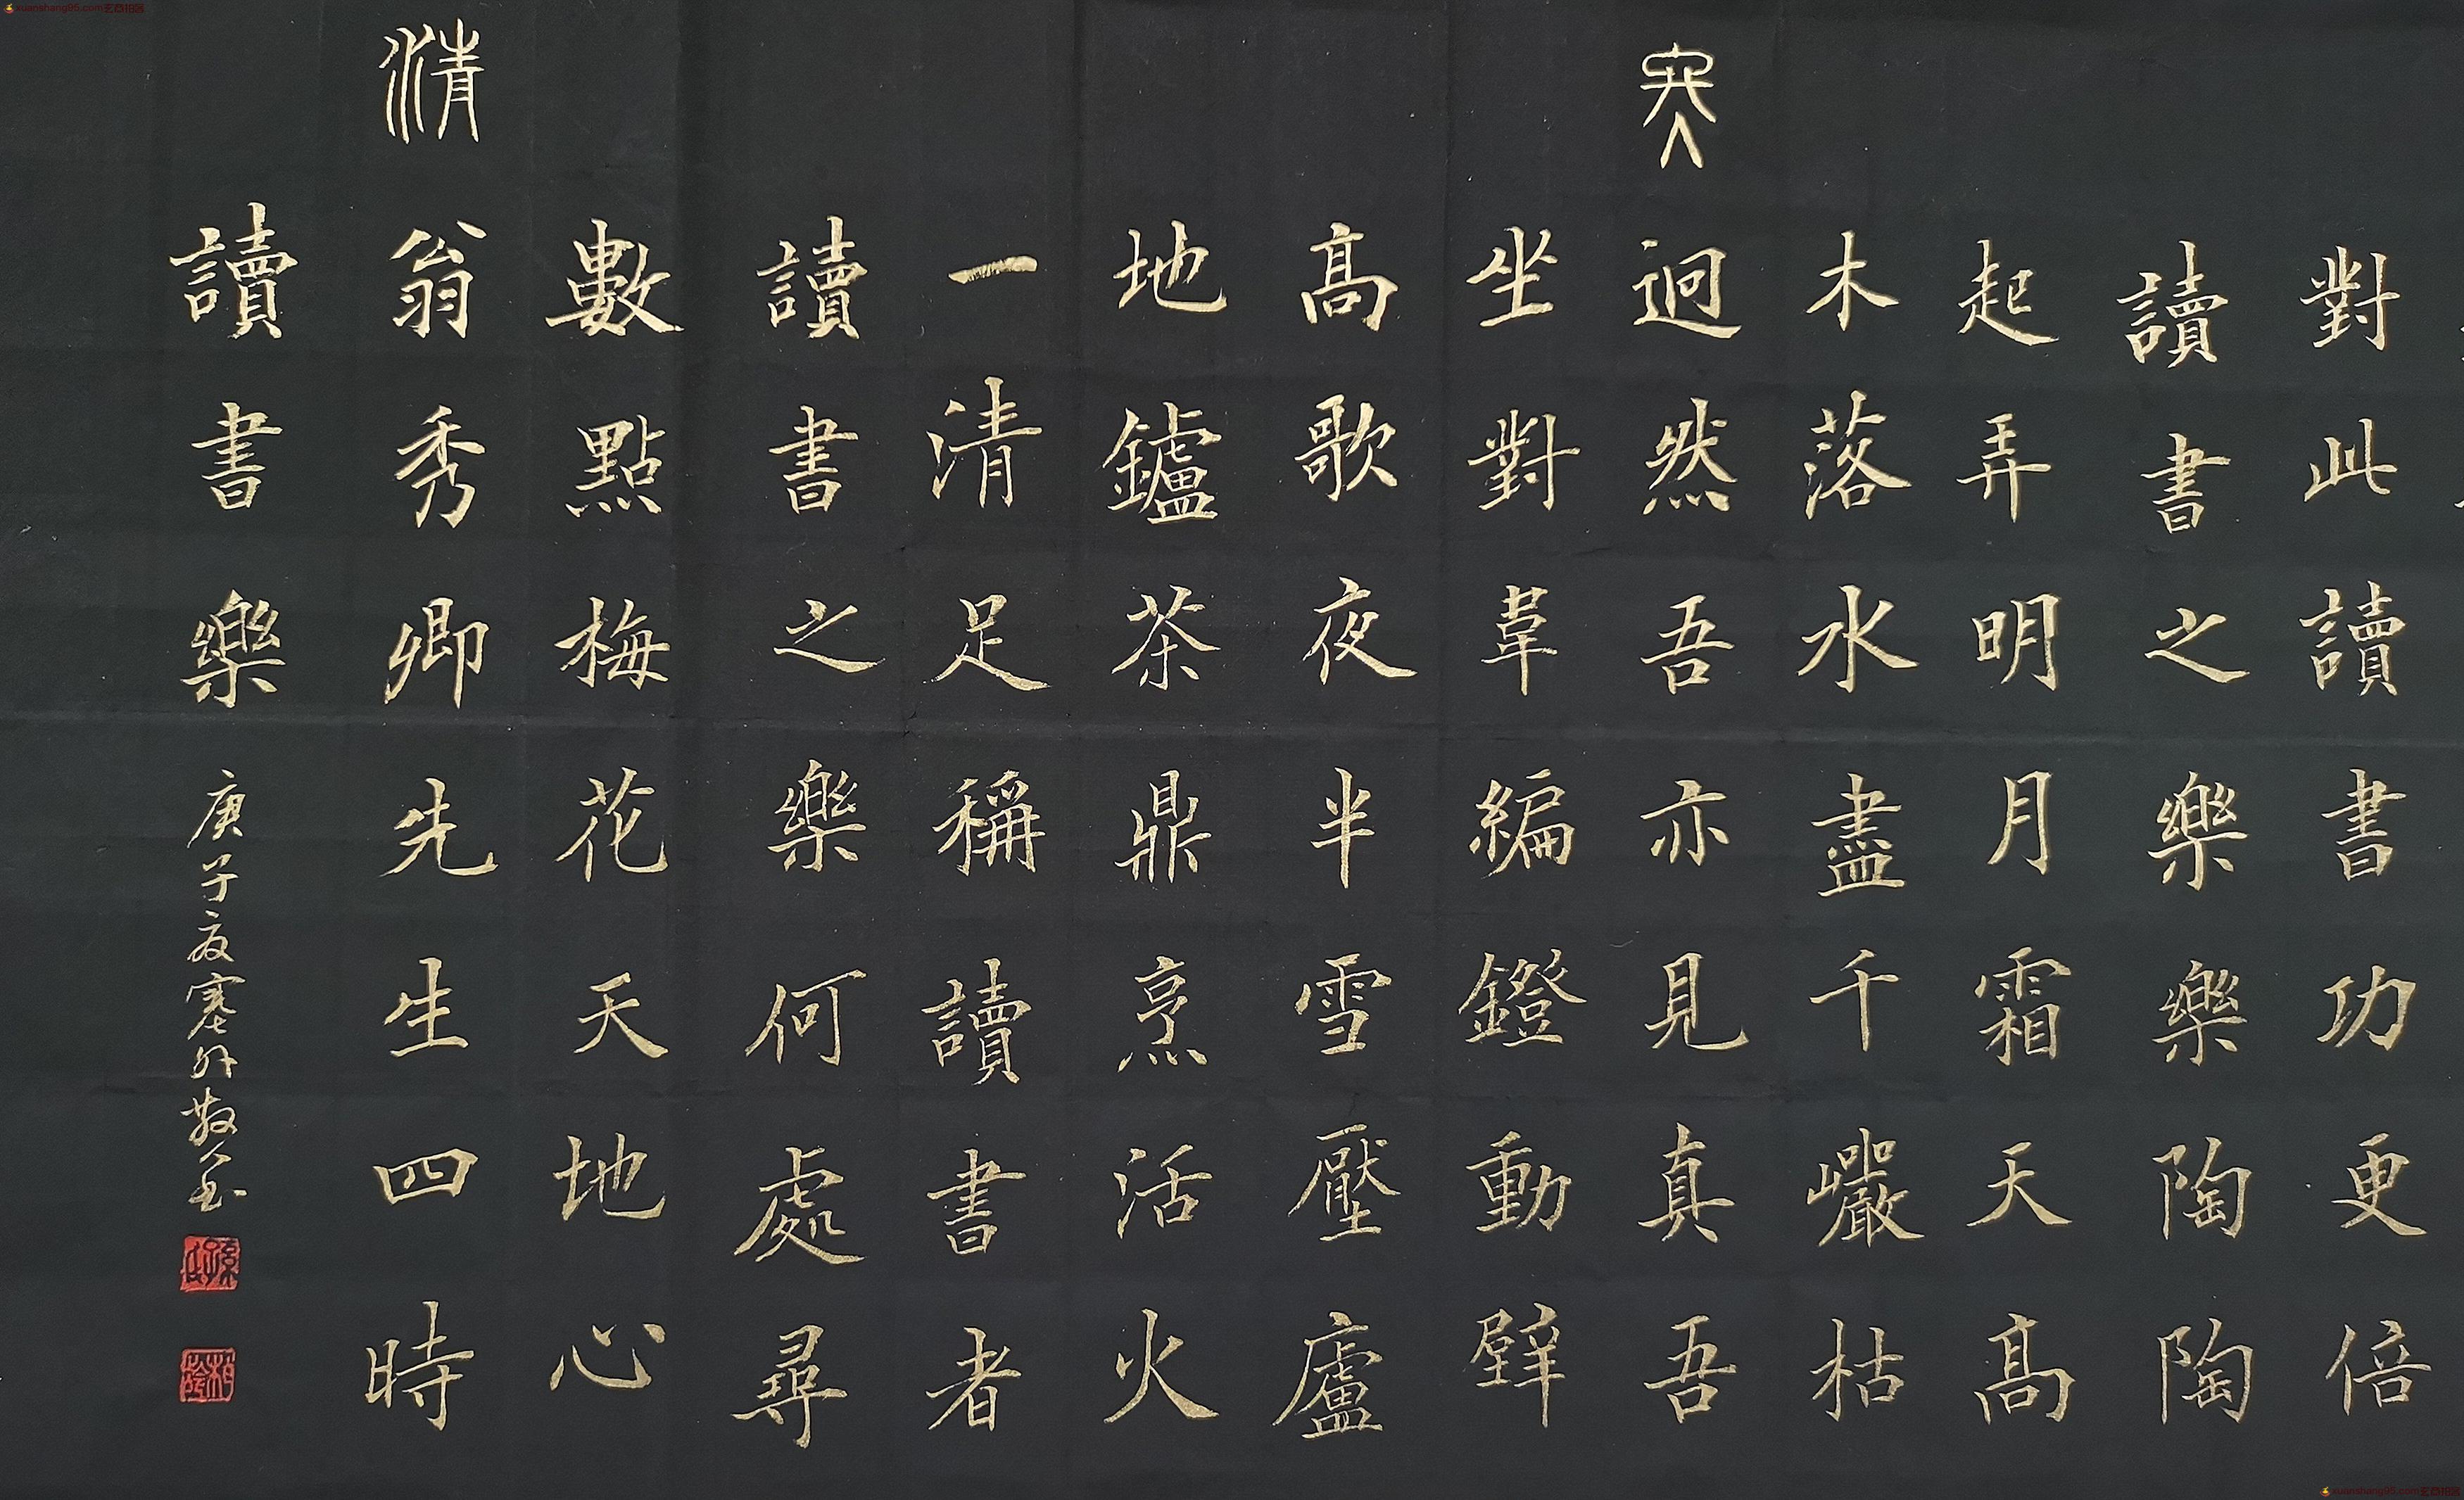 寒清
對此讀書功更倍
讀書之樂樂陶陶
起弄明月霜天高
木落水盡千巖枯
迥然吾亦見真吾
坐對韋編鐙動壁
高歌夜半雪壓廬
地鑪茶鼎烹活火
一清足稱讀書者
讀書之樂何處尋
數點梅花天地心
翁秀卿先生四時
讀書樂
庚子夏塞外散人書